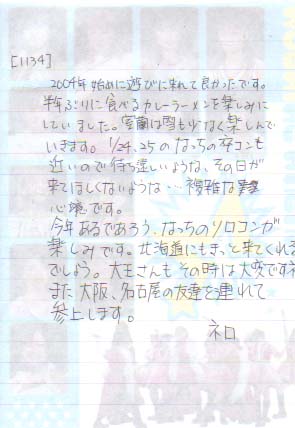 [1134]
2004年始めに遊びに来れて良かったです。
半年ぶりに食べるカレーラーメンを楽しみに
していました。室蘭は雪も少なく楽しんで
いきます。1/24、25のなっちの卒コンも
近いので待ち遠しいような、その日が
来てほしくないような…複雑な
心境です。
今年あるであろう、なっちのソロコンが
楽しみです。北海道にもきっと来てくれる
でしょう。大王さんもその時は大変ですネ
また大阪、名古屋の友達を連れて
参上します。
ネロ